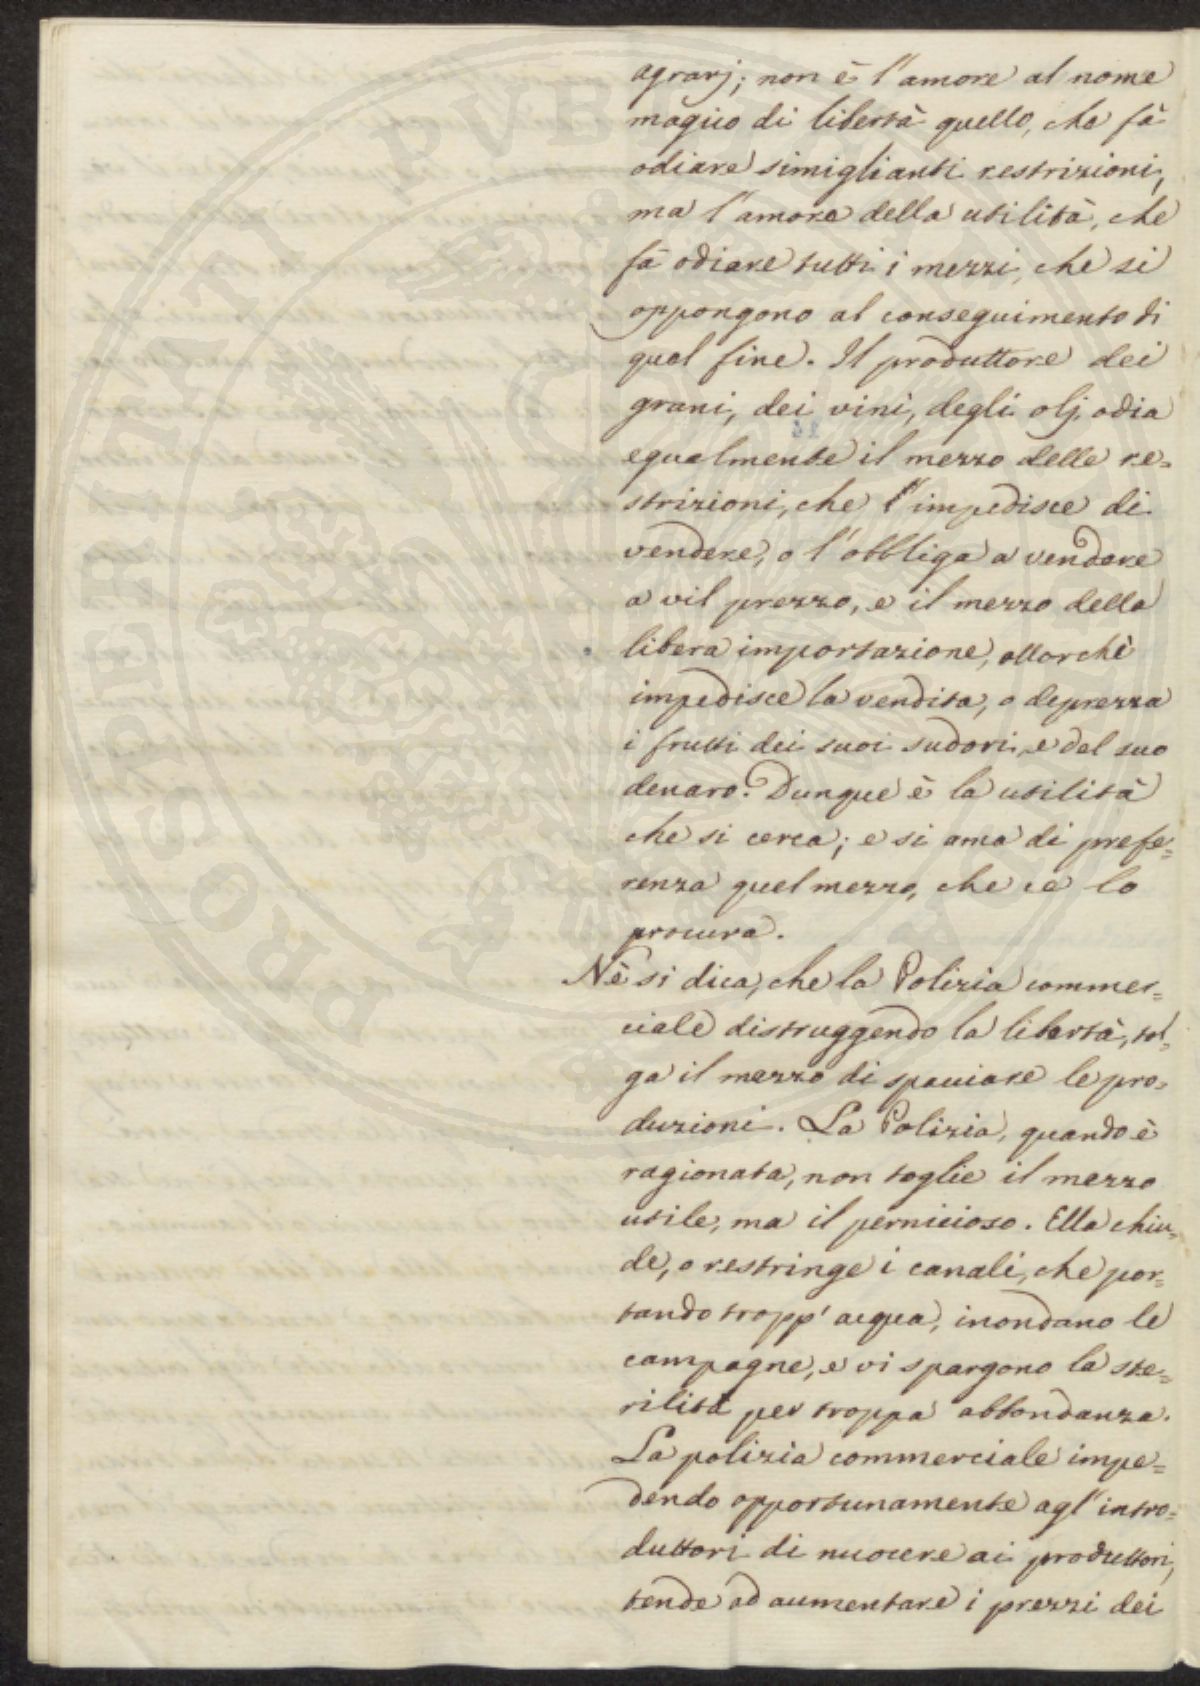 agrarj; non è l'amore al nome
magico di libertà quello, che fà
odiare simiglianti restrizioni,
ma l'amore della utilità, che
fà odiare tutti i mezzi, che si
oppongono al conseguimento di
quel fine. Il produttore dei
grani, dei vini, degli olj, odia
egualmente il mezzo delle re=
strizioni, che l'impedisce di
vendere, o l'obbliga a vendere
a vil prezzo, e il mezzo della
libera importazione, allorchè
impedisce la vendita, o deprezza
i frutti dei suoi sudori, e del suo
denaro. Dunque è la utilità
che si cerca; e si ama di prefe=
renza quel mezzo, che ce lo
procura.
Nè si dica, che la Polizia commer=
ciale distruggendo la libertà, tol=
ga il mezzo di spacciare le pro=
duzioni. La Polizia, quando è
ragionata, non toglie il mezzo
utile, ma il pernicioso. Ella chiu=
de, o restringe i canali, che por=
tando tropp' acqua, inondano le
campagne, e vi spargono la ste=
rilità per troppa abbondanza.
La polizia commerciale impe=
dendo opportunamente agl'intro=
duttori di nuocere ai produttori,
tende ad aumentare i prezzi dei
PROSPERITATI PUBLICAE